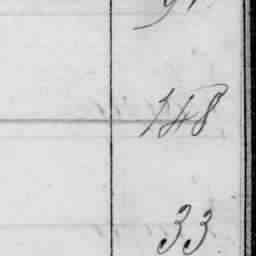 148
33